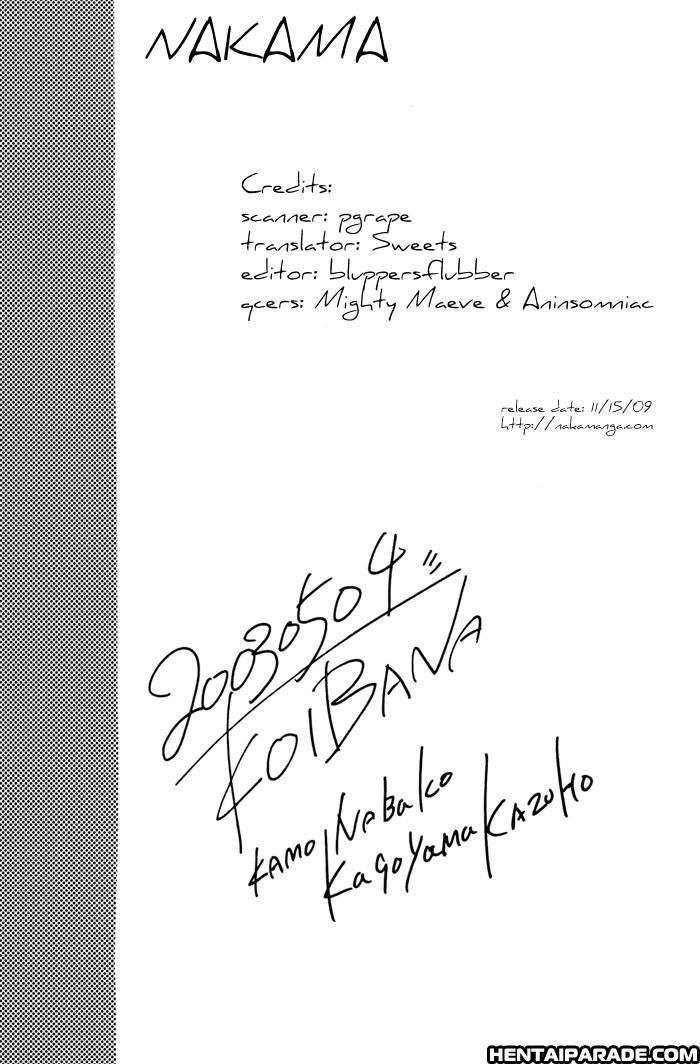 NAKAMA
Credits:
scanner: pgrape
translator: Sweets
editor: bluppersflubber
qcers: Mighty Maeve & Aninsomniac
release date: 11/15/09
http://nakamanga.com
20030504
KOIBANA
KAMO NABAKO
KAGOYAMA KAZUHO
HENTAIPARADE.COM